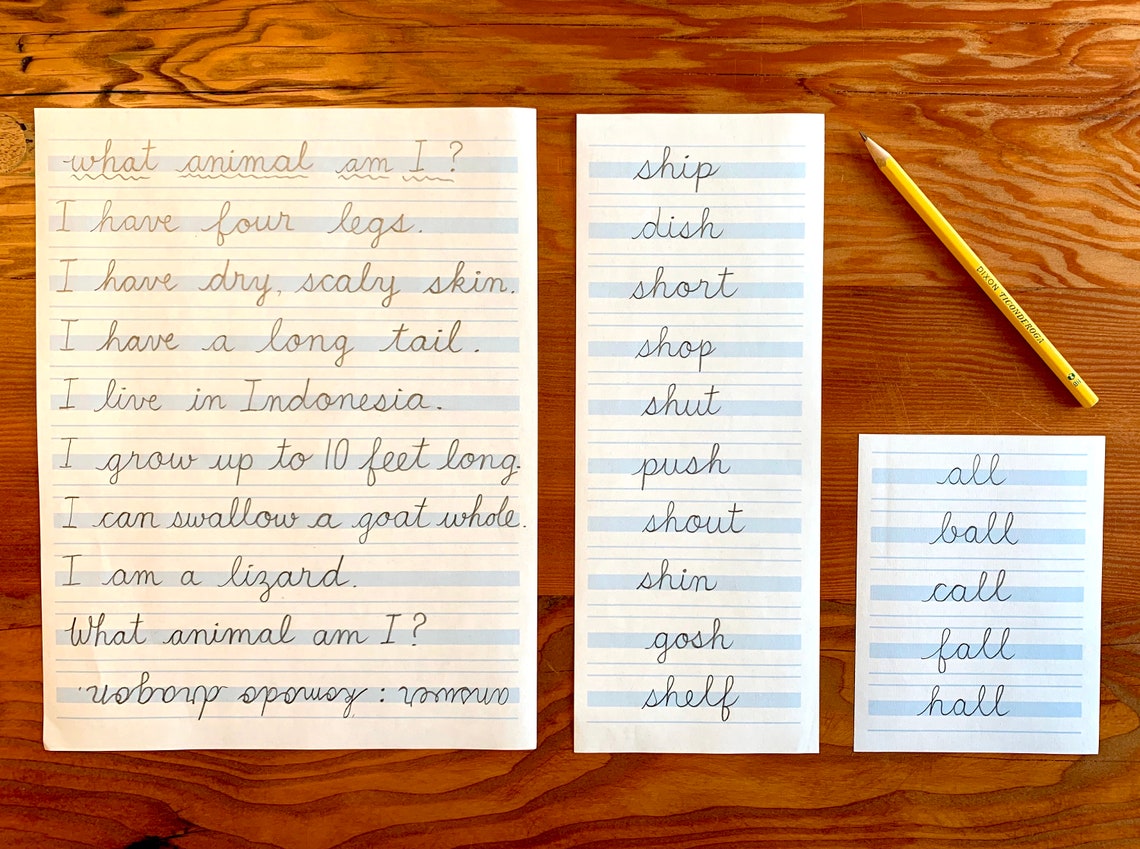 what animal am I?
I have four legs.
I have dry, scaly skin.
I have a long tail.
I live in Indonesia.
I grow up to 10 feet long.
I can swallow a goat whole.
I am a lizard.
What animal am I?
answer: komodo dragon.
ship
dish
short
shop
shut
push
shout
shin
gosh
shelf
DIXON TICONDEROGA
all
ball
call
fall
hall